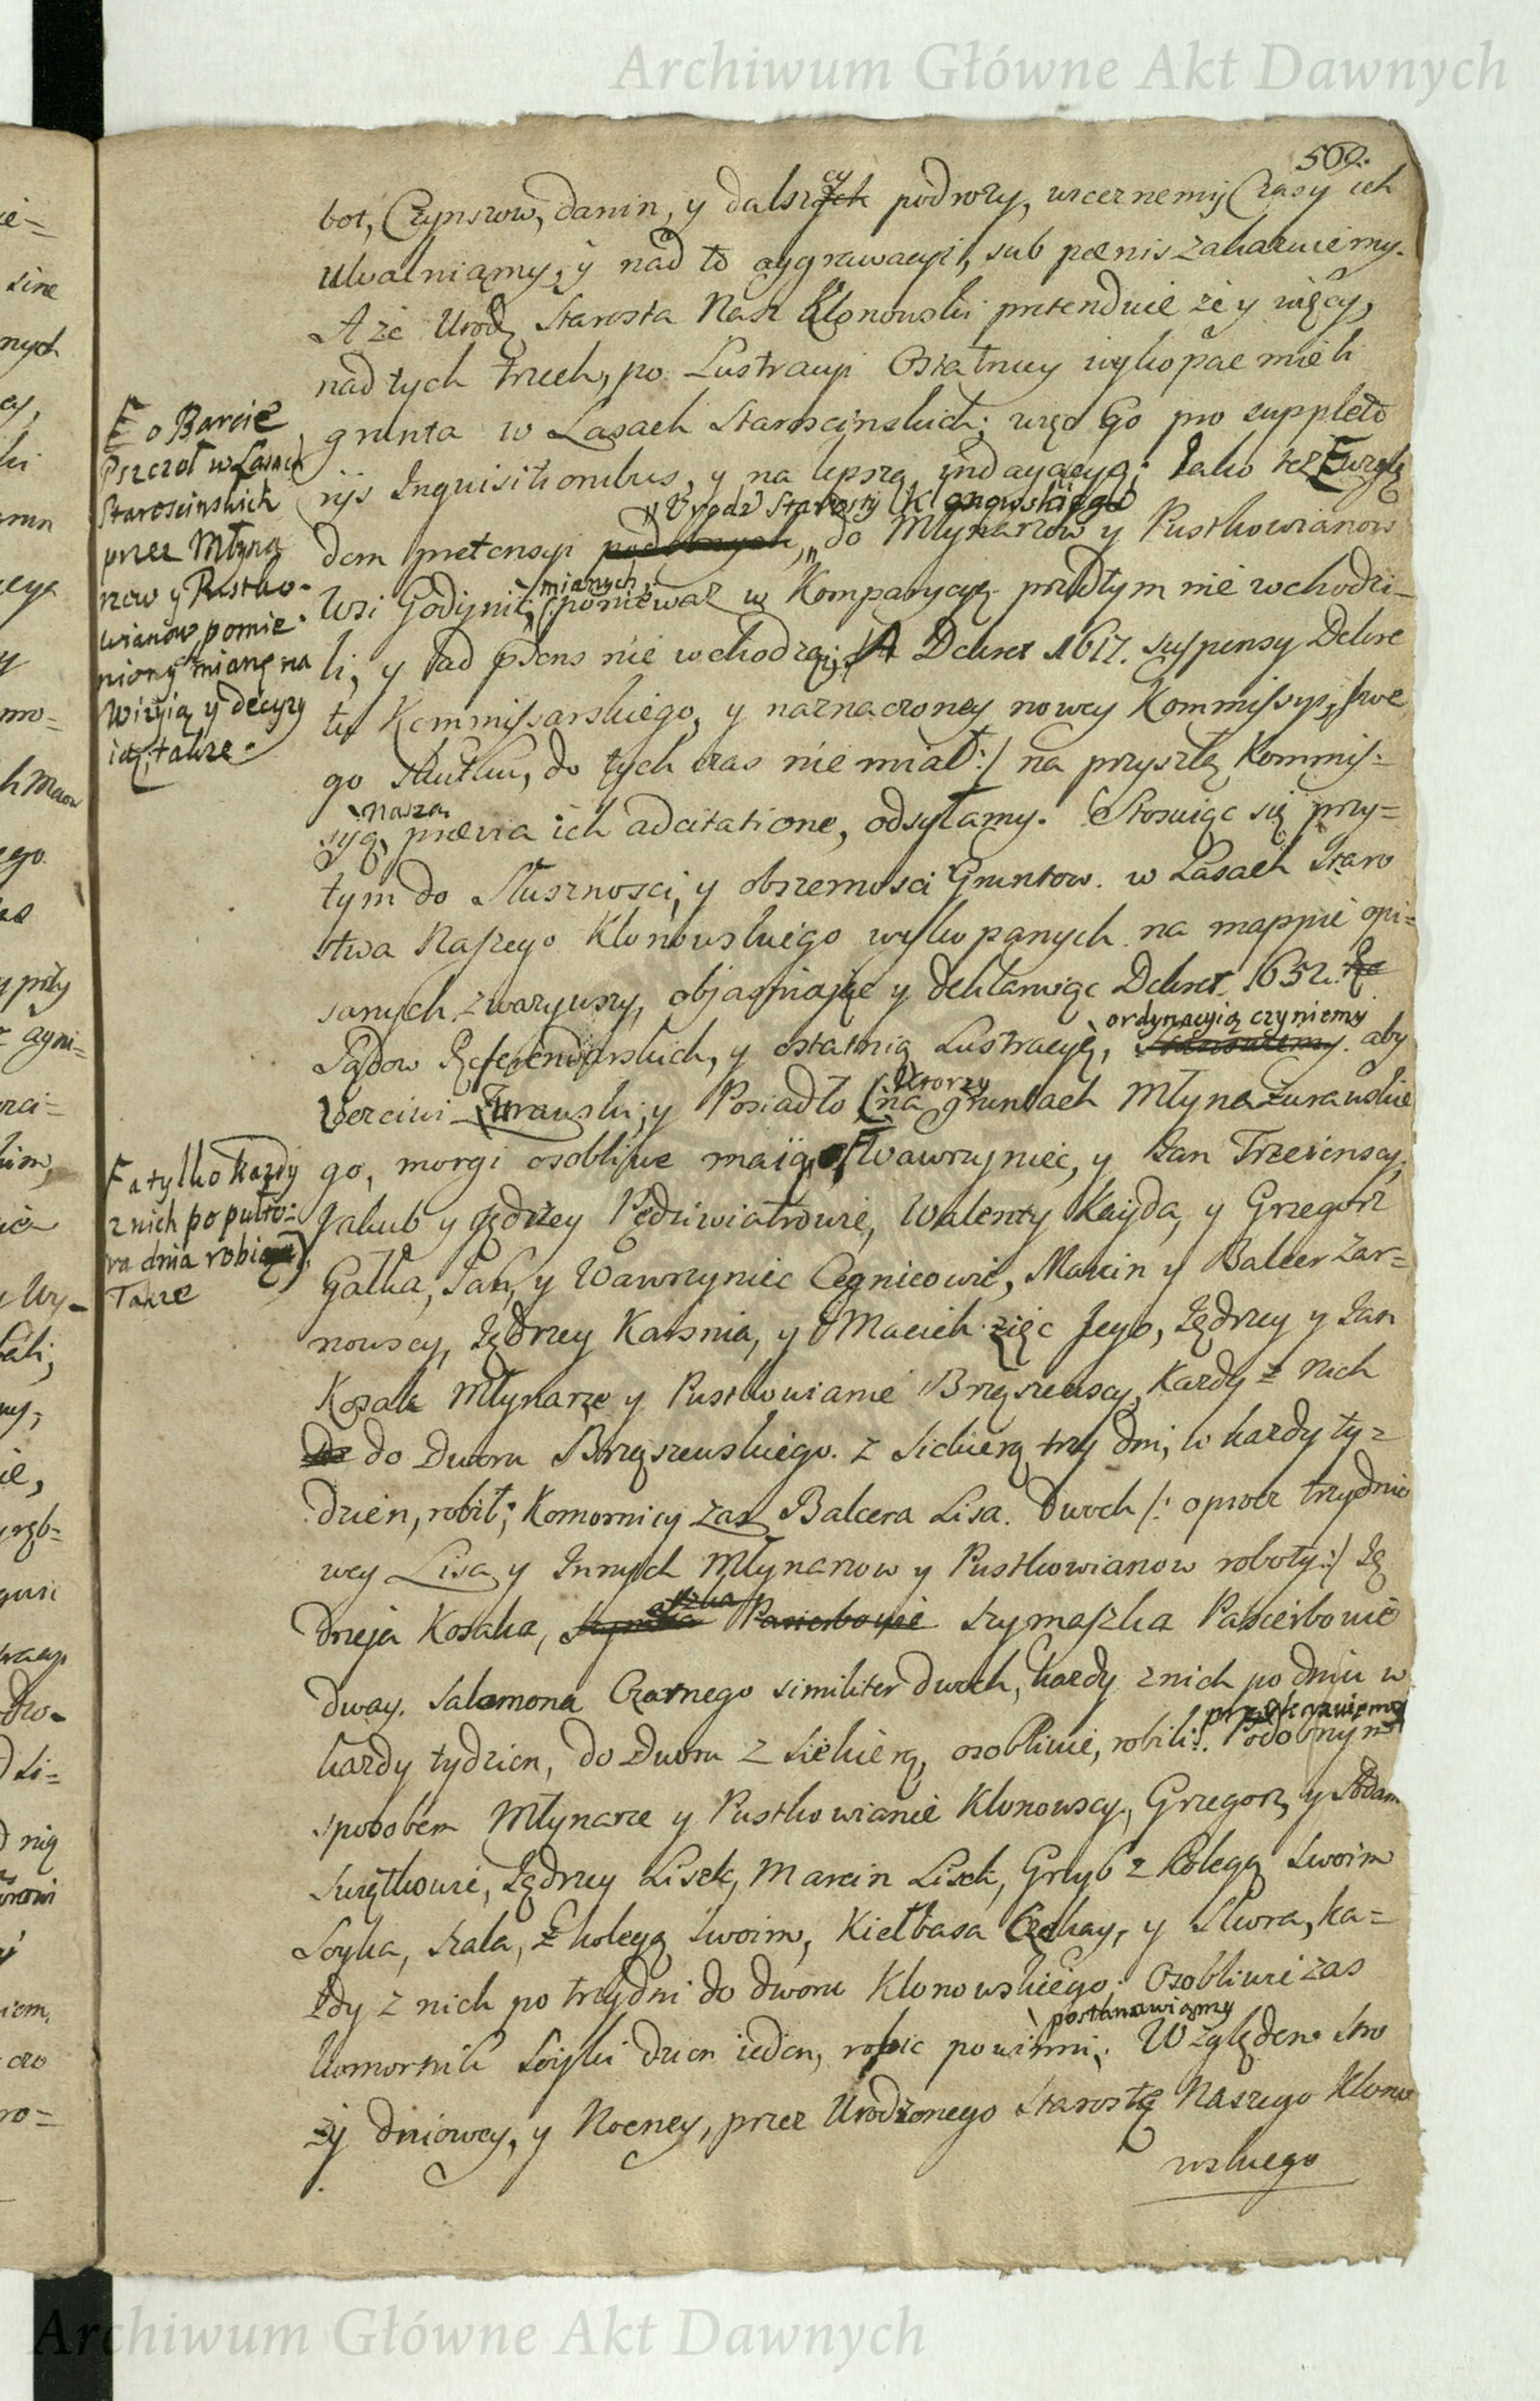 Archiwum Główne Akt Dawnych
509.
bot, Czynszow, danin, y dalszcy podrozy, wcernemi Czasy ich
uwalniamy, y nad to aggrawacyi, sub pœnis zakazuiemy.
A że Urodz Starosta Nasz Klonowski pretenduie że y więcy,
nad tych trzech, po Lustracyi Ostatniey wykopać mieli
grunta w Lasach Starościnskich; więc Go pro suppleto
rijs Inquisitionibus, y na lepszą indagacyą; Jako też wzglę
dem pretensyi podobnych, Urodz Starosty Klonowskiego do Młynarzow y Pustkowianow
Wsi Godynic, mianych, (: ponieważ w Kompanycyę przedtym nie wchodzi-
li, y ad præsens nie wchodzą; A Dekret 1617. suspensy Dekre
tu Kommissarskiego, y naznaczoney nowey Kommissyi, swe
go skutku, do tych czas nie miał :/ na przyszłą Kommis:
syią, Naszą prævia ich adcitatione, odsyłamy. Stosuiąc się przy=
tym do Słuszności, y obszerności Gruntow. w Lasach Staro
stwa Naszego Klonowskiego wykopanych na mappie opi=
sanych zwarzywszy, objasniaiąc y deklaruiąc Dekret 1632.
Sądow Referendarskich, y ostatnią Lustracyę, ordynacyią czyniemy aby
Uerciwi Zurawski, y Posiadło (ktorzy na gruntach Młyna Zurawskie
go, morgi osobliwe maią, Wawrzyniec, y Jan Trzcinscy,
Jakub y Jędrzey Pędziwiatrowie, Walenty Kayda, y Grzegorz
Gałka, Jan, y Wawrzyniec Cegnicowie, Marcin y Balcer Zar=
nowscy, Jędrzey Karsnia, y Maciek zięc Jego, Jędrzey y Jan
Kozak Młynarze y Pustkowianie Brzęszewscy, Kazdy z nich
do Dworu Brzęszewskiego. z Siekierą trzy dni, w kazdy ty=
dzien, robił; Komornicy zaś Balcera Lisa. Dwoch /: oprocz trzydnio
wey Lisa y Innych Młynarzow y Pustkowianow roboty :/ Ję
drzeja Kozaka, Szymaszka Pasierbowie
dway. Salomona Czarnego similiter dwoch, kazdy z nich po dniu w
kazdy tydzien, do Dworu z Siekierą, osobliwie, robili: przykazuiemy Podobnym
sposobem Młynarze y Pustkowianie Klonowscy, Grzegorz y Adam
Swiętkowie, Jędrzey Lisek, Marcin Lisek, Grzyb z kolegą Swoim
Soyka, Szala, z kolegą Swoim, Kiełbasa Czekay, y Skora, ka=
żdy z nich po trzy dni do dworu Klonowskiego; Osobliwie zas
komornik Soyki dzien ieden, robic powinni, postanawiamy Względem Stro
ży dniowey, y Nocney, przez Urodzonego Starostę Naszego Klono
wskiego
o Barcie
Pszczoł w Lasach
Starościnskich
przez Młyna
rzow y Pustko-
wianow pomie
niony miane na
Wizyią y decyzy
ią, także.
a tylko kazdy
z nich po pułto=
ra dnia robią),
Takze
Archiwum Główne Akt Dawnych